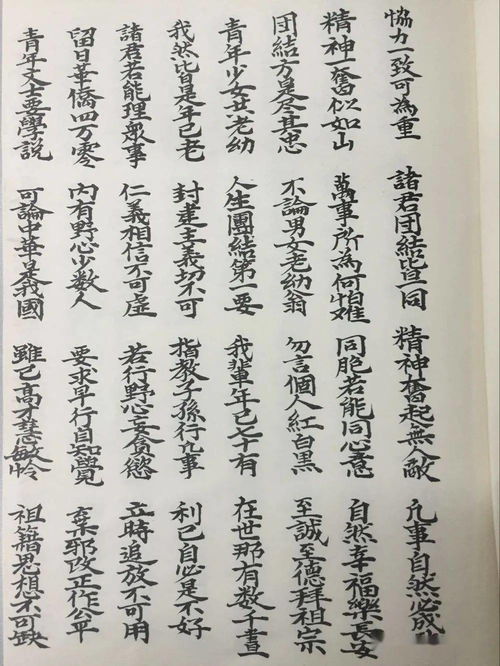 恊力一致可為重 諸君団結皆一同 精神奮起無人敵 凡事自然必成
精神一奮似如山 萬事所為何怕难 同胞若能同心意 自然幸福樂長安
団結方是尽其忠 不論男女老幼翁 勿言個人紅白黒 至誠至德拜祖宗
青年少女共老幼 人生團結第一要 我輩年已七十有 在世那有数千晝
我然皆是年已老 封建主義切不可 指教子孫行凡事 利己自必是不好
諸君若能理衆事 仁義相信不可虛 若行野心妄貪慾 立時追放不可用
留日華僑四万零 内有野心少数人 要求早行自知覺 棄邪改正作公平
青年文士要學説 可論中華是我國 雖已高才慧敏怜 祖籍思想不可缺